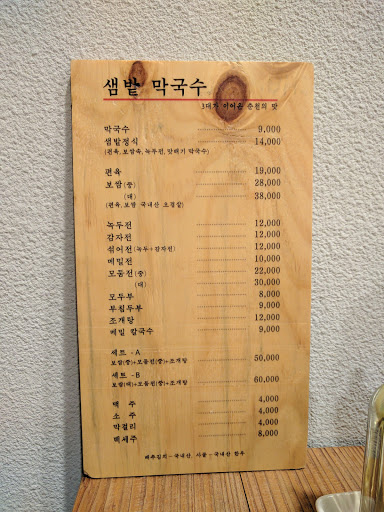 샘밭 막국수
3대가 이어온 춘천의 맛
막국수 9,000
샘밭정식 14,000
(편육, 보쌈속, 녹두전, 맛배기 막국수)
편육 19,000
보쌈 (중) 28,000
(대) 38,000
(편육, 보쌈 국내산 오겹살)
녹두전 12,000
감자전 12,000
섞어전 (녹두+감자전) 12,000
메밀전 10,000
모둠전 (중) 22,000
(대) 30,000
모두부 8,000
부침두부 9,000
조개탕 12,000
메밀 칼국수 9,000
세트 -A 50,000
보쌈(중)+모둠전(중)+조개탕
세트 -B 60,000
보쌈(대)+모둠전(중)+조개탕
맥 주 4,000
소 주 4,000
막걸리 4,000
백세주 8,000
배추김치-국내산, 사골-국내산 한우